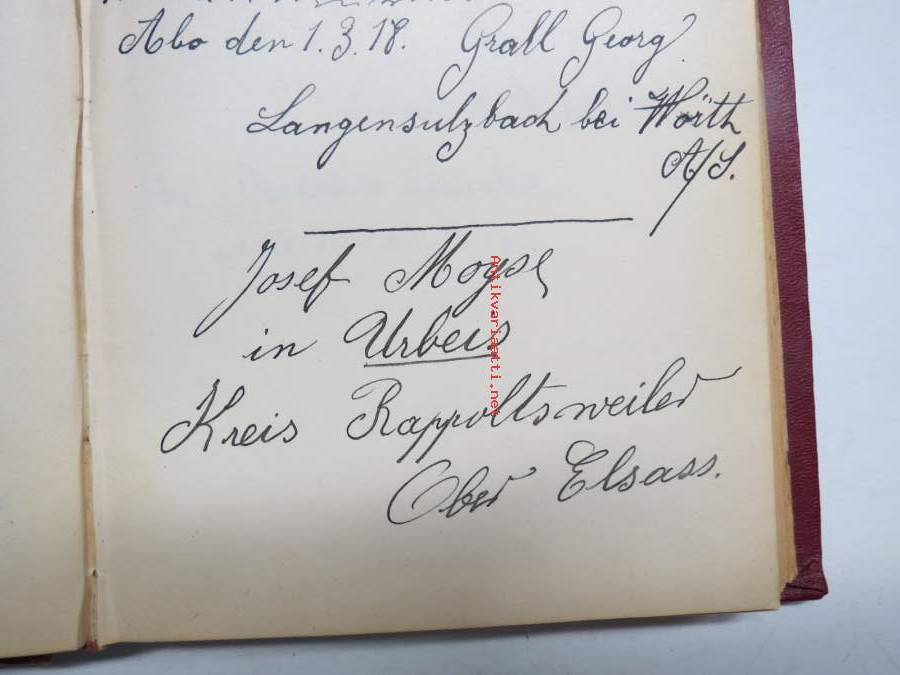 Abo den 1.3.18. Grall Georg
Langensulzbach bei Wörth
A/S.
Josef Moyse
in Urbeis
Kreis Rappoltsweiler
Ober Elsass.
Antikvariaatti.net